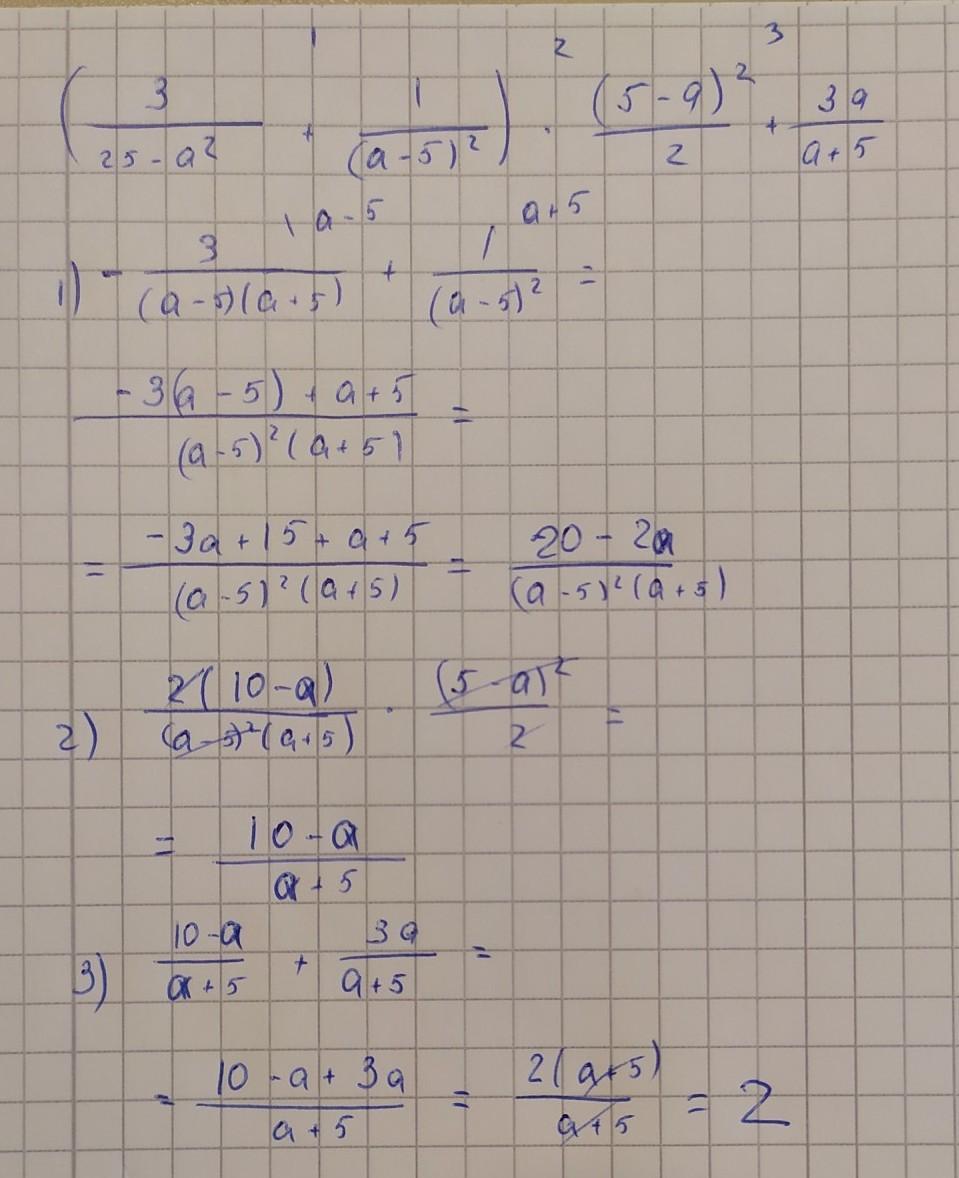 1 2 3
(3/(25 - a²) + 1/(a - 5)²) · (5 - a)²/2 + 3a/(a + 5)
1) - 3/((a - 5)(a + 5)) \ a - 5 + 1/(a - 5)² \ a + 5 =
(-3(a - 5) + a + 5)/((a - 5)²(a + 5)) =
= (-3a + 15 + a + 5)/((a - 5)²(a + 5)) = (20 - 2a)/((a - 5)²(a + 5))
2) 2(10 - a)/((a - 5)²(a + 5)) · (5 - a)²/2 =
= (10 - a)/(a + 5)
3) (10 - a)/(a + 5) + 3a/(a + 5) =
= (10 - a + 3a)/(a + 5) = 2(a + 5)/(a + 5) = 2